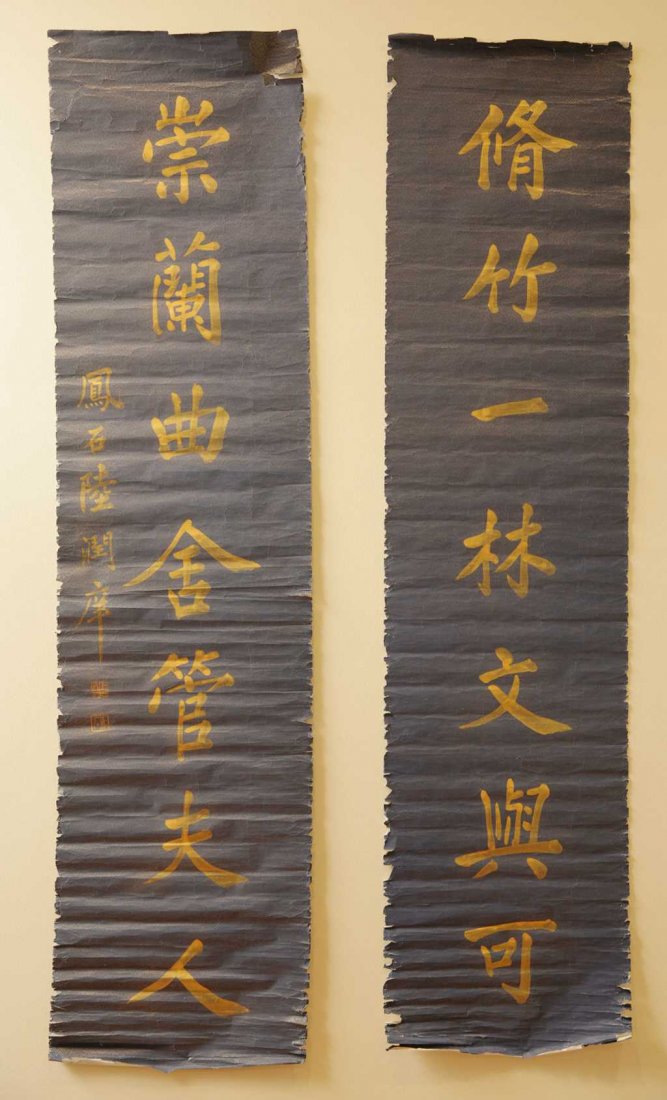 脩竹一林文與可
崇蘭曲舍管夫人
鳳石陸潤庠